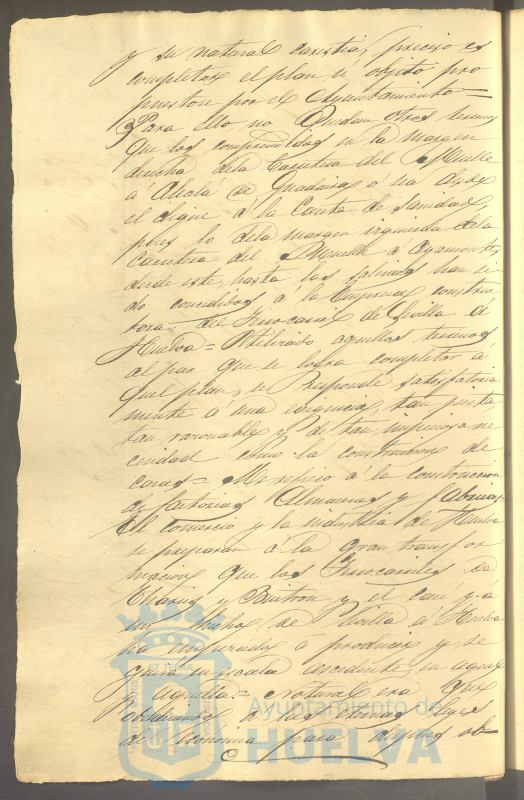 y su natural carestia, preciso es
completar el plan ú objeto pro
puesto por el Ayuntamiento =
Para ello no quedan otros terrenos
que los comprendidos en la margen
derecha dela Carretera del Muelle
á Alcalá de Guadaira ó sea desde
el dique á la Caseta de Sanidad,
pues lo dela margen izquierda dela
Carretera del Muelle á Ayamonte,
desde este, hasta las salinas han si
do concedidos á la Empresa construc
tora del Ferrocarril de Sevilla á
Huelva = Utilizado aquellos terrenos
al par que se logra completar a
quel plan, se responde satisfactoria
mente á una exigencia, tan justa
tan razonable y de tan imperiosa ne
cesidad como la construccion de
casas = Me refiero á la construccion
de factorias Almacenes y fabricas
El Comercio y la industria de Huelva
se preparan á la gran transfor
macion que los Ferrocarriles de
Tharsis y Buitron y el casi ya
un hecho, de Sevilla á Huelva
ha empezado á producir y se
guirá en escala ascendente en aquel
y aquella = Natural era que
obedeciendo á las eternas leyes
de economia para algunos ob-
Ayuntamiento de
HUELVA